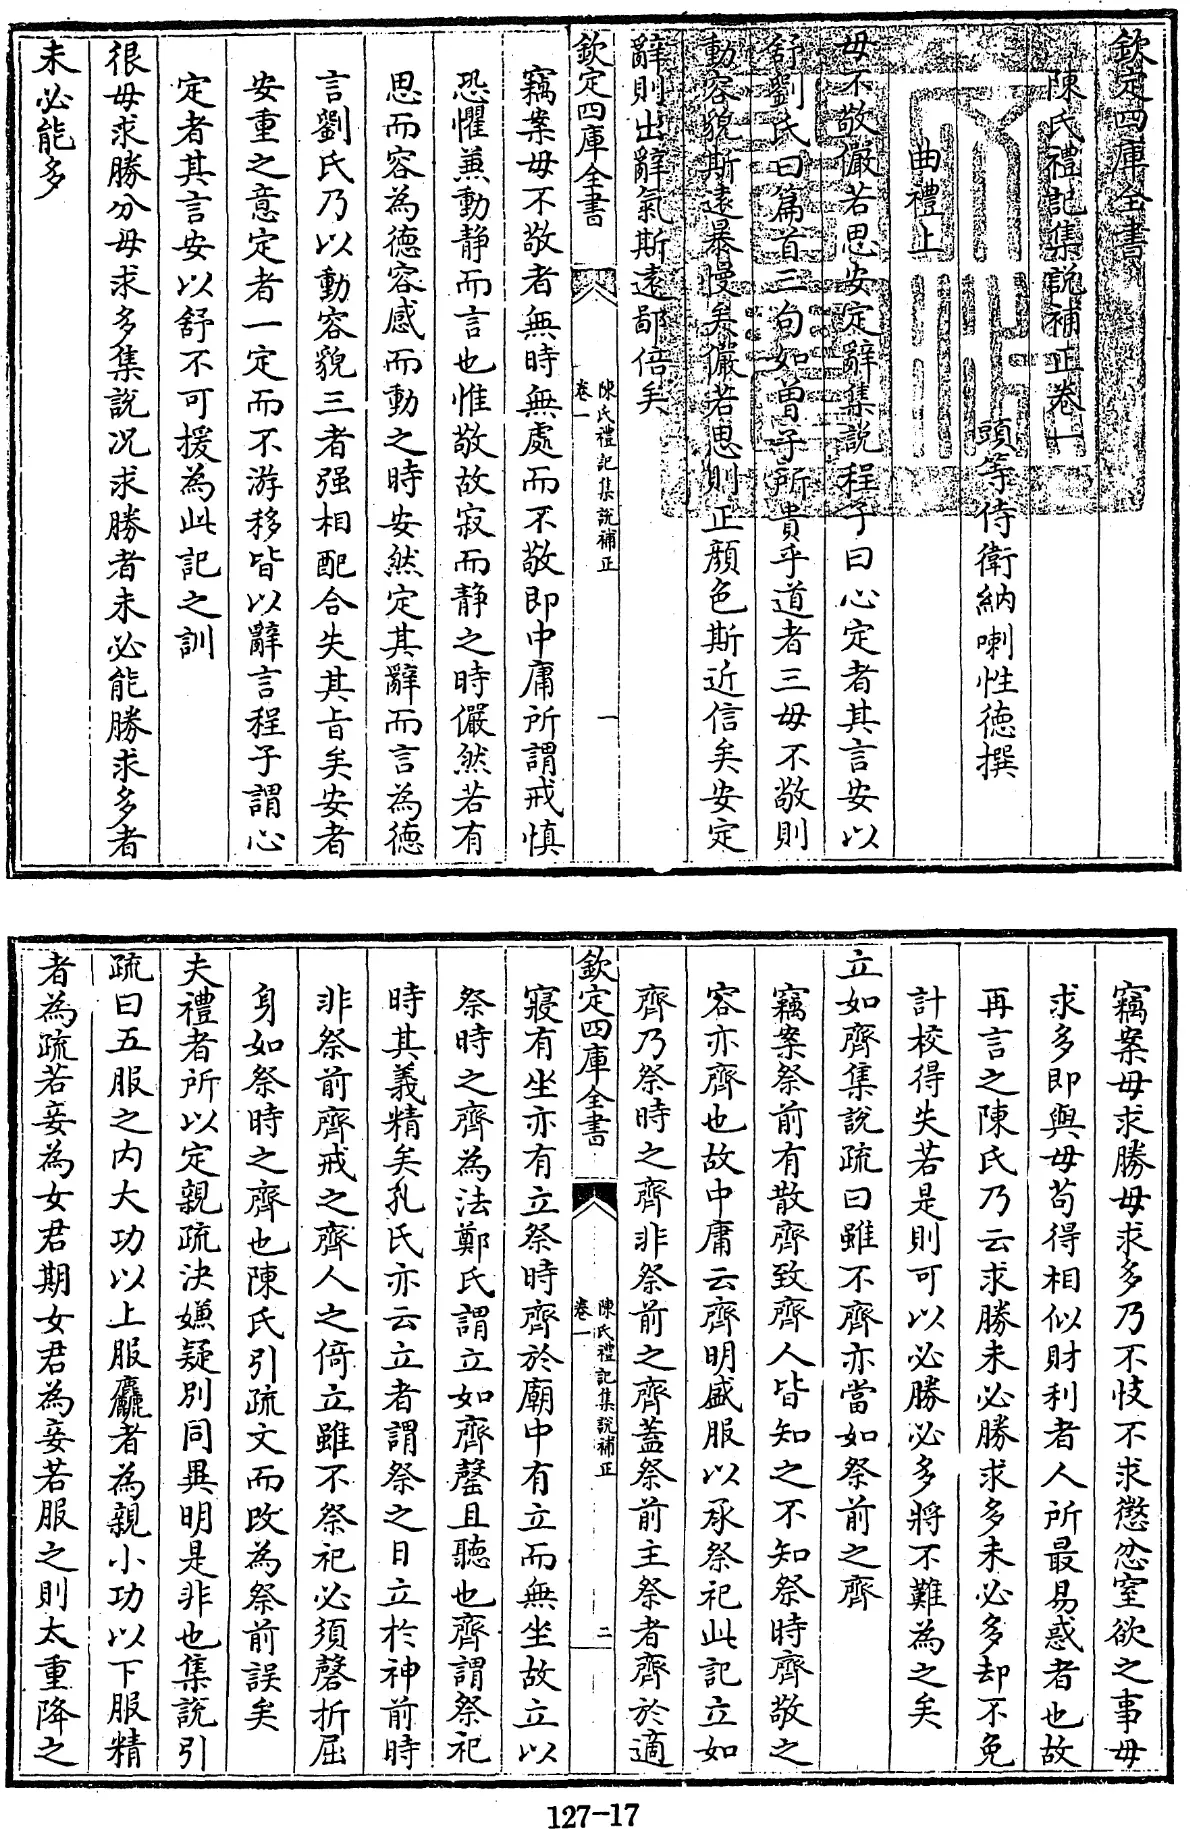 欽定四庫全書
陳氏禮記集說補正卷一
頭等侍衛納喇性德撰
曲禮上
毋不敬儼若思安定辭集說程子曰心定者其言安以
舒劉氏曰篇首三句如曾子所貴乎道者三毋不敬則
動容貌斯遠暴慢矣儼若思則正顏色斯近信矣安定
辭則出辭氣斯遠鄙倍矣
欽定四庫全書
陳氏禮記集說補正
卷一
一
竊案毋不敬者無時無處而不敬即中庸所謂戒慎
恐懼兼動静而言也惟敬故寂而静之時儼然若有
思而容為德容感而動之時安然定其辭而言為德
言劉氏乃以動容貌三者强相配合失其旨矣安者
安重之意定者一定而不游移皆以辭言程子謂心
定者其言安以舒不可援為此記之訓
很毋求勝分毋求多集說况求勝者未必能勝求多者
未必能多
竊案毋求勝毋求多乃不忮不求懲忿窒欲之事毋
求多即與毋苟得相似財利者人所最易惑者也故
再言之陳氏乃云求勝未必勝求多未必多却不免
計校得失若是則可以必勝必多將不難為之矣
立如齊集說疏曰雖不齊亦當如祭前之齊
竊案祭前有散齊致齊人皆知之不知祭時齊敬之
容亦齊也故中庸云齊明盛服以承祭祀此記立如
齊乃祭時之齊非祭前之齊蓋祭前主祭者齊於適
欽定四庫全書
陳氏禮記集說補正
卷一
二
寢有坐亦有立祭時齊於廟中有立而無坐故立以
祭時之齊為法鄭氏謂立如齊磬且聽也齊謂祭祀
時其義精矣孔氏亦云立者謂祭之日立於神前時
非祭前齊戒之齊人之倚立雖不祭祀必須磬折屈
身如祭時之齊也陳氏引疏文而改為祭前誤矣
夫禮者所以定親疏決嫌疑別同異明是非也集說引
疏曰五服之内大功以上服麤者為親小功以下服精
者為疏若妾為女君期女君為妾若服之則太重降之
127-17